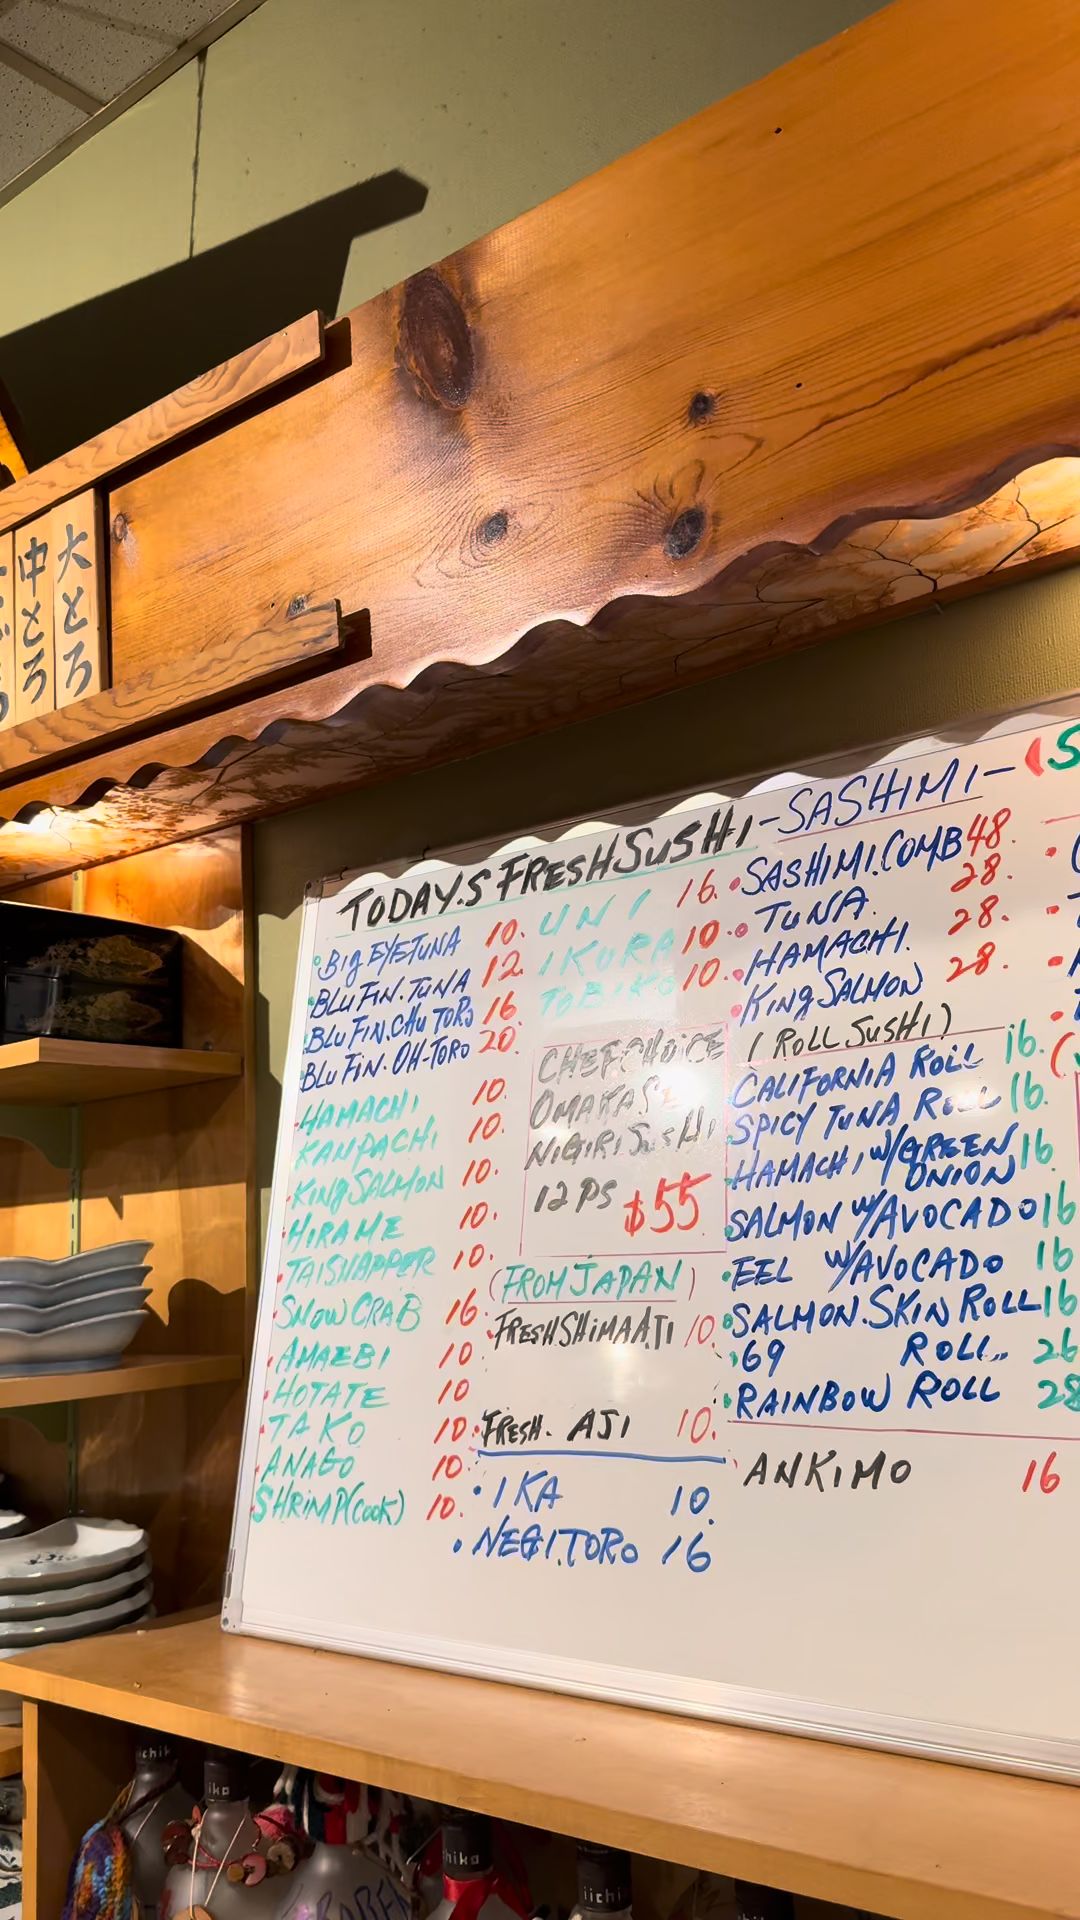 大とろ
中とろ
TODAY.S FRESH SUSHI
BIg EYETUNA 10.
BLUFIN.TUNA 12.
BLUFIN.CHU TORO 16
BLUFIN.OH-TORO 20.
HAMACHI 10.
KANPACHI 10.
KINgSALMON 10.
HIRAME 10.
TAISNAPPER 10.
SNOW CRAB 16.
AMAEBI 10
HOTATE 10
TAKO 10.
ANAGO 10.
SHRIMP(COOK) 10.
UNI 16.
IKURA 10.
TOBIKO 10.
CHEF CHOICE
OMAKASE
NIGIRI SUSHI
12 PS $55
(FROM JAPAN)
FRESH SHIMAAJI 10.
FRESH. AJI 10.
IKA 10.
NEGI.TORO 16
-SASHIMI-
SASHIMI.COMB 48.
TUNA. 28.
HAMACHI. 28.
KINg SALMON 28.
(ROLL SUSHI)
CALIFORNIA ROLL 16.
SPICY TUNA ROLL 16.
HAMACHI W/GREEN ONION 16
SALMON W/AVOCADO 16
EEL W/AVOCADO 16
SALMON.SKIN ROLL 16
69 ROLL.. 26
RAINBOW ROLL 28
ANKIMO 16
iichiko